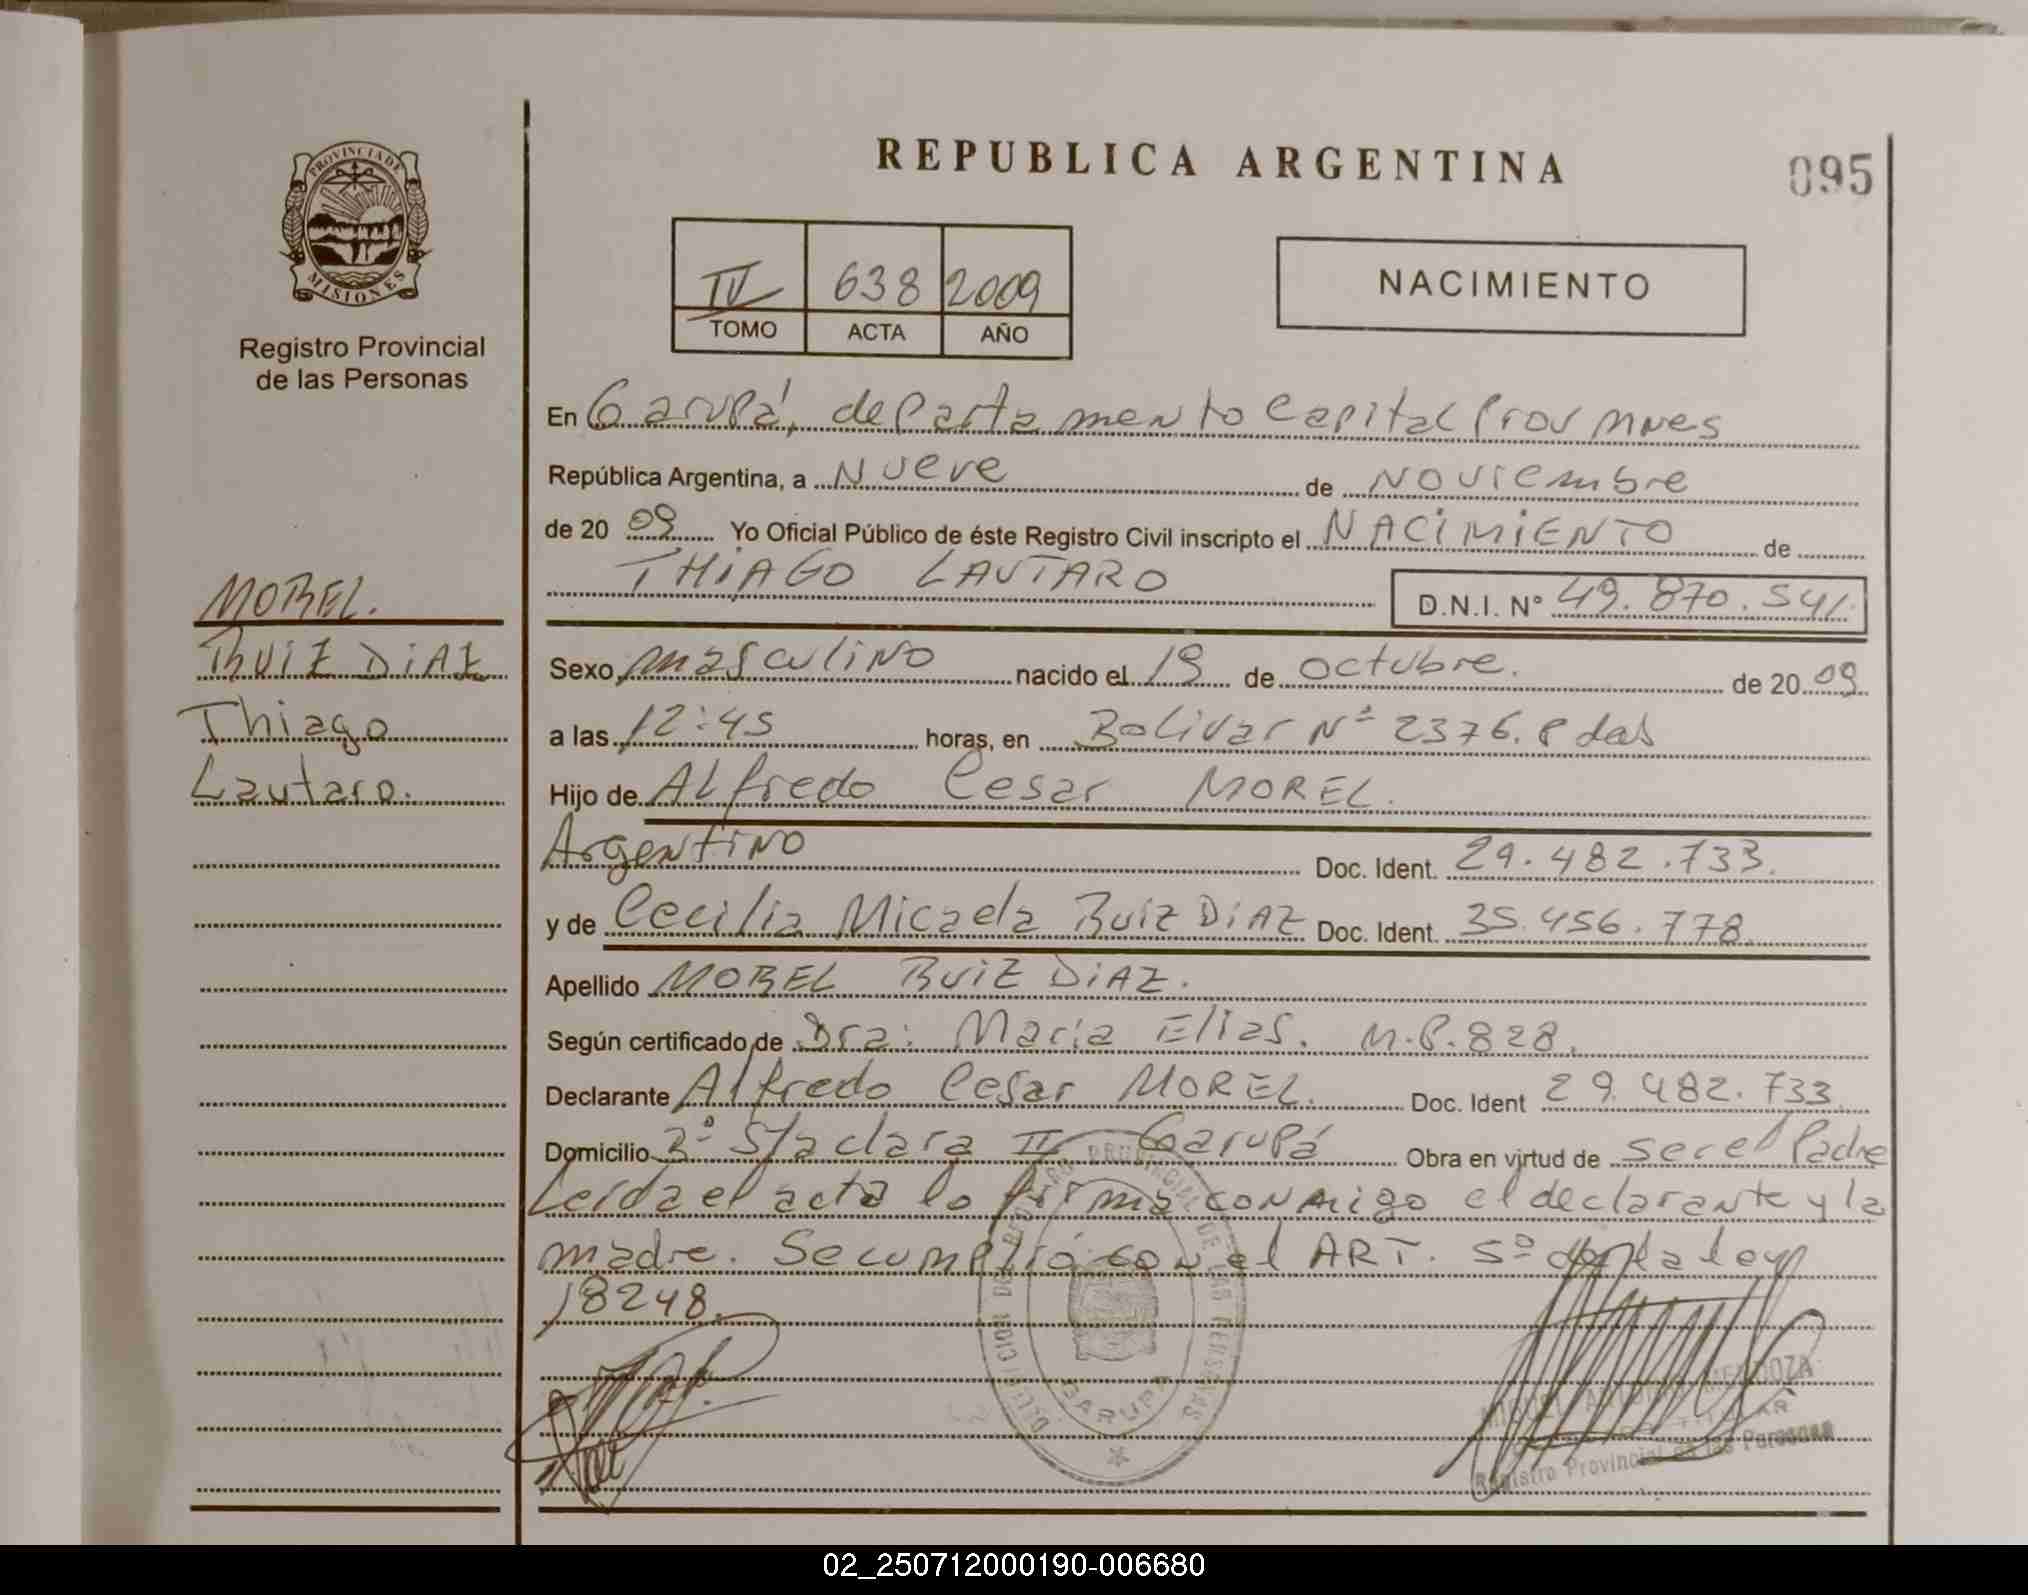 REPUBLICA ARGENTINA
095
PROVINCIA DE
MISIONES
Registro Provincial
de las Personas
IV 638 2009
TOMO ACTA AÑO
NACIMIENTO
En Garupá, departamento Capital Prov Mnes
República Argentina, a Nueve de Noviembre
de 20 09 Yo Oficial Público de éste Registro Civil inscripto el NACIMIENTO de
THIAGO LAUTARO D.N.I. N° 49.870.541.
MOREL.
RUIZ DIAZ
Thiago
Lautaro.
Sexo masculino nacido el 19 de octubre. de 20 09
a las 12:45 horas, en Bolivar N° 2376. Pdas
Hijo de Alfredo Cesar MOREL.
Argentino Doc. Ident. 29.482.733.
y de Cecilia Micaela RUIZ DIAZ Doc. Ident. 35.456.778.
Apellido MOREL RUIZ DIAZ.
Según certificado de Dra: Maria Elias. M.P.828.
Declarante Alfredo Cesar MOREL. Doc. Ident 29.482.733
Domicilio B° Sta clara II Garupá Obra en virtud de ser el Padre
Leida el acta lo firma conmigo el declarante y la
madre. Se cumplió con el ART. 5° de la ley
18248.
DELEGACION DEL REGISTRO PROVINCIAL DE LAS PERSONAS
GARUPA
MIGUEL ANTONIO MENDOZA
Registro Provincial de las Personas
02_250712000190-006680